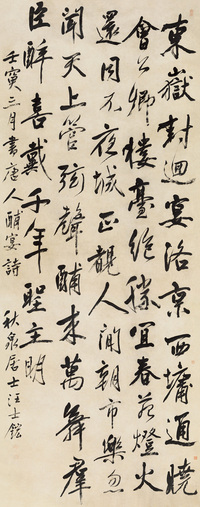 東嶽封迴宴洛京西墉通曉
會公卿樓臺絕勝宜春苑燈火
還同不夜城正覩人間朝市樂忽
聞天上管弦聲酺來萬舞羣
臣醉喜戴千年聖主明
壬寅三月書唐人酺宴詩
秋泉居士汪士鋐